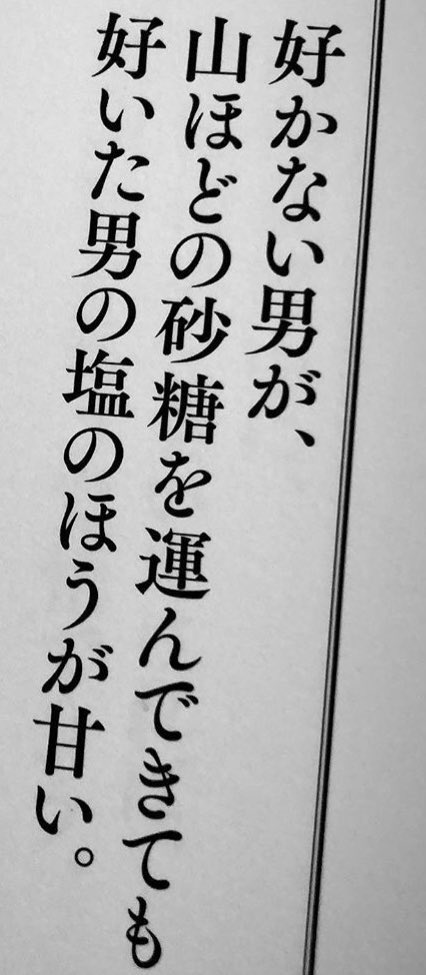 好かない男が、
山ほどの砂糖を運んできても
好いた男の塩のほうが甘い。